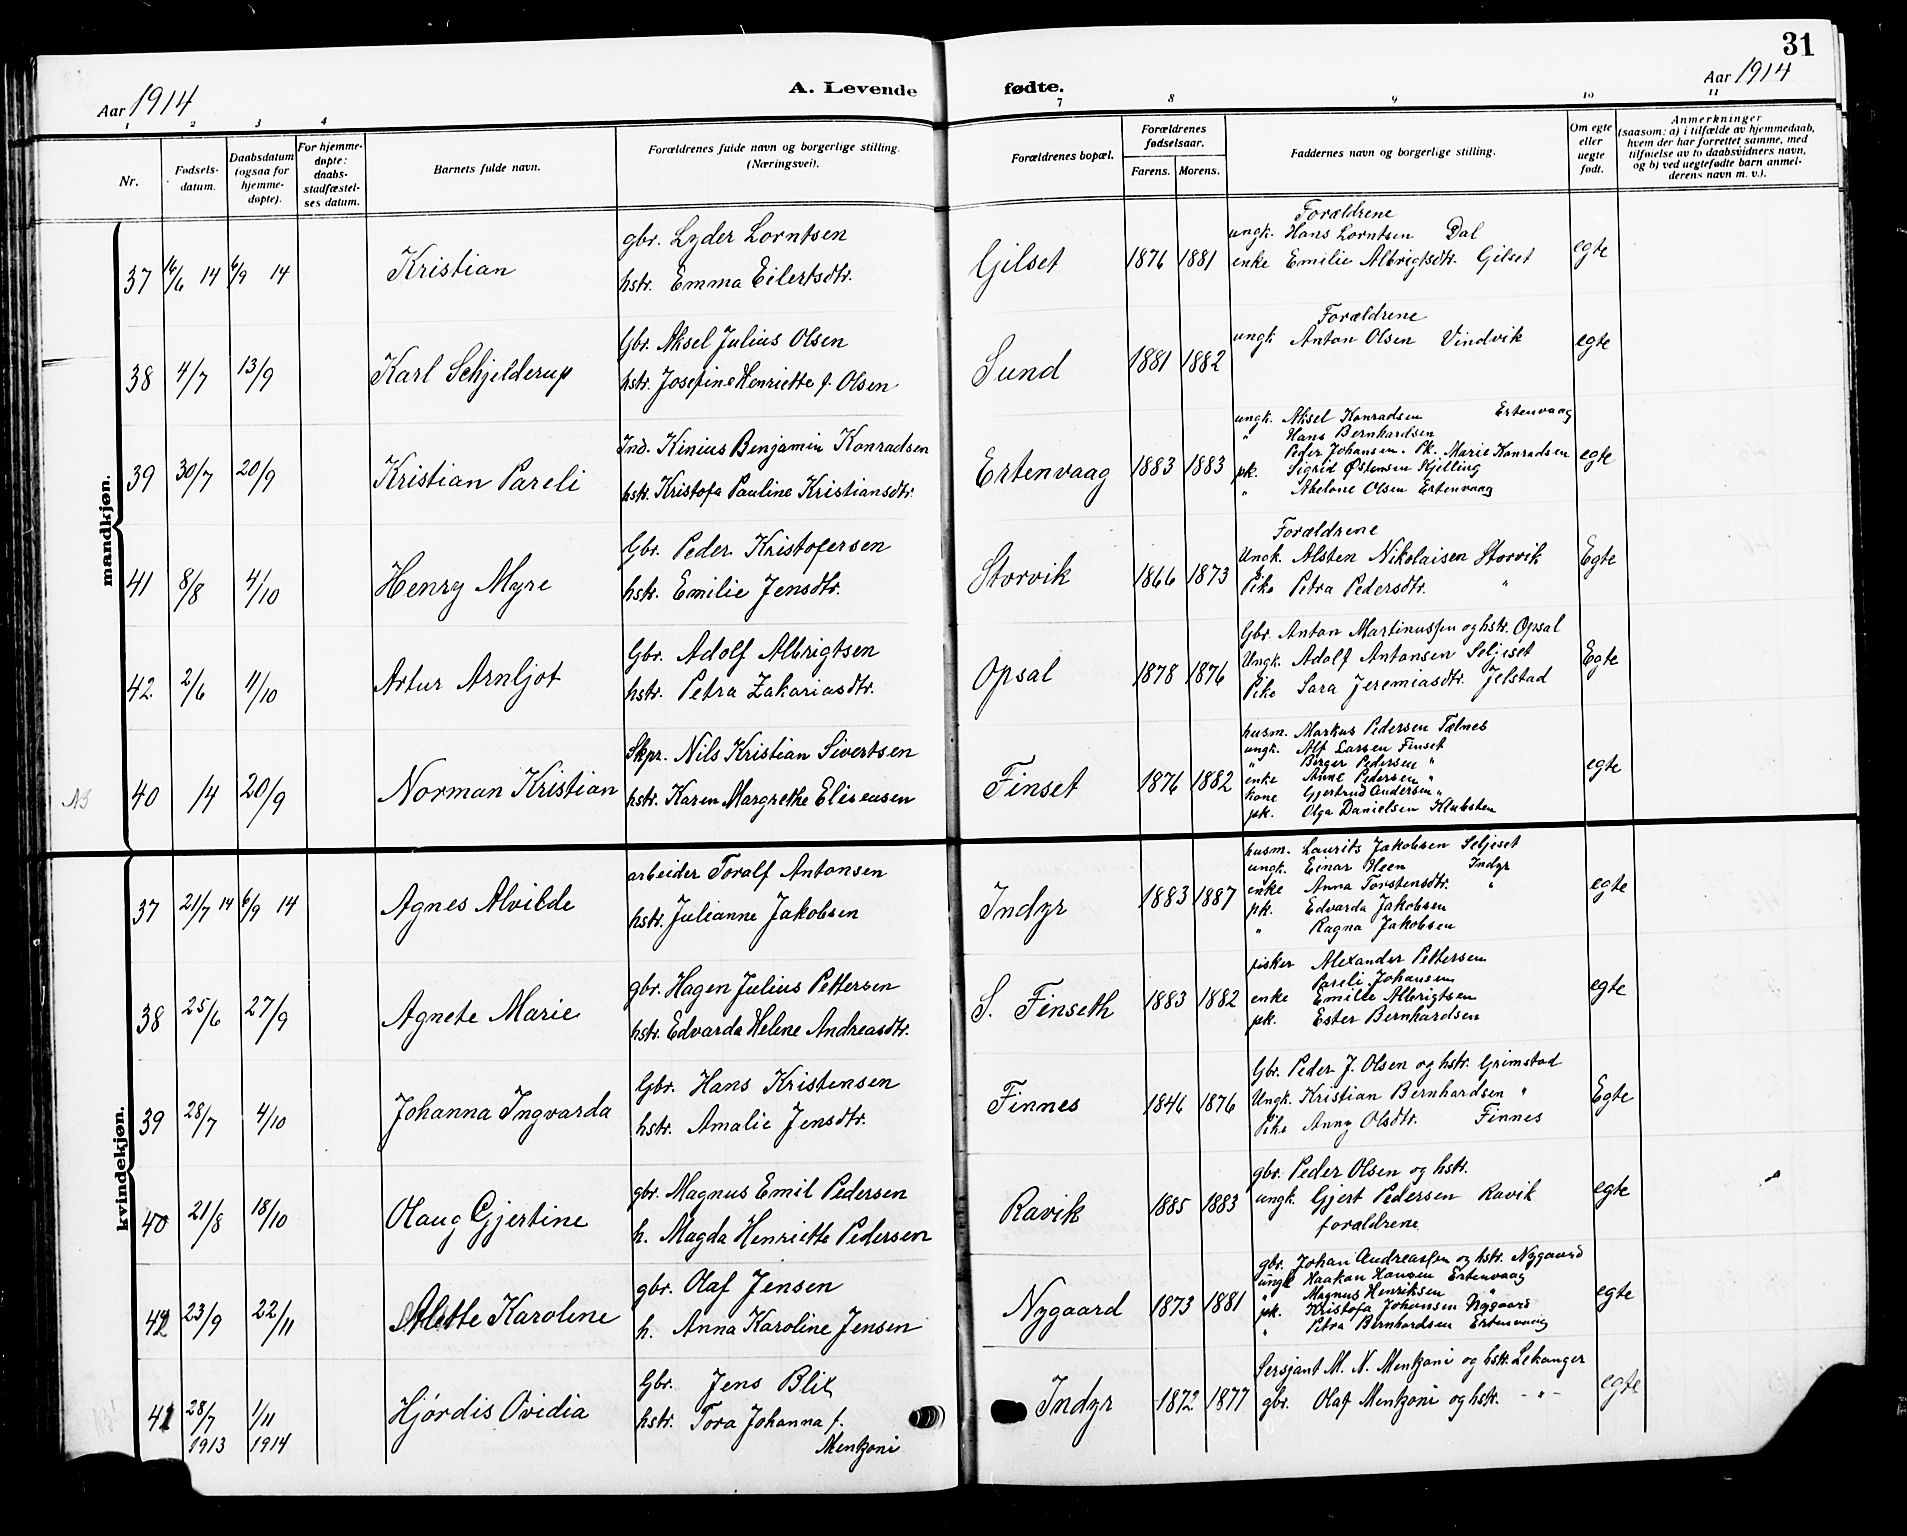 31
Aar 1914
A. Levende fødte.
Aar 1914
1 2 3 4 7 8 9 10 11
Nr.
Fødsels-
datum.
Daabsdatum
(ogsaa for
hjemme-
døpte).
For hjemme-
døpte:
daabs-
stadfæstel-
ses datum.
Barnets fulde navn.
Forældrenes fulde navn og borgerlige stilling.
(Næringsvei).
Forældrenes bopæl.
Forældrenes
fødselsaar.
Farens. Morens.
Faddernes navn og borgerlige stilling.
Om egte
eller
uegte
født.
Anmerkninger
(saasom: a) i tilfælde av hjemmedaab,
hvem der har forrettet samme, med
tilføielse av to daabsvidners navn,
og b) ved uegtefødte barn anmel-
derens navn m. v.).
mandkjøn.
37 16/6 14 6/9 14 Kristian
gbr. Lyder Lorntsen
hstr. Emma Eilertsdtr.
Gilset 1876 1881
Forældrene
ungk. Hans Lorntsen Dal
enke Emilie Albrigtsdtr. Gilset
egte
38 4/7 13/9 Karl Schjelderup
Gbr. Aksel Julius Olsen
hstr. Josefine Henriette f. Olsen
Sund 1881 1882
Forældrene
ungk. Anton Olsen Vindvik
egte
39 30/7 20/9 Kristian Pareli
Ind. Kinius Benjamin Konradsen
hstr. Kristofa Pauline Kristiansdtr.
Ertenvaag 1883 1883
ungk. Aksel Konradsen Ertenvaag
" Hans Bernhardsen
Peder Johansen. Pk. Marie Konradsen
pk. Sigrid Østensen Kjelling
" Abelone Olsen Ertenvaag
egte
41 8/8 4/10 Henry Myre
Gbr. Peder Kristofersen
hstr. Emilie Jensdtr.
Storvik 1866 1873
Forældrene
Ungk. Alsten Nikolaisen Storvik
Pike Petra Pedersdtr. "
Egte
42 2/6 11/10 Artur Arnljot
Gbr. Adolf Albrigtsen
hstr. Petra Zakariasdtr.
Opsal 1878 1876
Gbr. Anton Martinussen og hstr. Opsal
Ungk. Adolf Antonsen Seljeset
Pike Sara Jeremiasdtr. Jelstad
Egte
NB 40 14 20/9 Norman Kristian
Skpr. Nils Kristian Sivertsen
hstr. Karen Margrethe Eliseusen
Finset 1876 1882
husm. Markus Pedersen Tælnes
ungk. Alf Larsen Finset
" Birger Pedersen "
enke Anne Pedersen "
kone Gjertrud Andersen "
pk. Olga Danielsen Klubsten
egte
kvindekjøn.
37 21/7 14 6/9 14 Agnes Alvilde
arbeider Toralf Antonsen
hstr. Julianne Jakobsen
Indyr 1883 1887
husm. Laurits Jakobsen Seljeset
ungk. Einar Øleen Indyr
enke Anna Torstensdtr. "
pk. Edvarda Jakobsen
" Ragna Jakobsen
egte
38 25/6 27/9 Agnete Marie
gbr. Hagen Julius Pettersen
hstr. Edvarda Helene Andreasdtr.
S. Finseth 1883 1882
fisker Alexander Pettersen
Pareli Johansen
enke Emilie Albrigtsen
pk. Ester Bernhardsen
egte
39 28/7 4/10 Johanna Ingvarda
Gbr. Hans Kristensen
hstr. Amalie Jensdtr.
Finnes 1846 1876
Gbr. Peder J. Olsen og hstr. Grimstad
Ungk. Kristian Bernhardsen "
Pike Anny Olsdtr. Finnes
Egte
40 21/8 18/10 Olaug Gjertine
gbr. Magnus Emil Pedersen
h. Magda Henriette Pedersen
Ravik 1885 1883
gbr. Peder Olsen og hstr.
ungk. Gjert Pedersen Ravik
forældrene
egte
42 23/9 22/11 Alette Karoline
gbr. Olaf Jensen
h. Anna Karoline Jensen
Nygaard 1873 1881
gbr. Johan Andreassen og hstr. Nygaard
ungk. Haakon Hansen Ertenvaag
" Magnus Henriksen "
pk. Kristofa Johansen Nygaard
" Petra Bernhardsen Ertenvaag
egte
41 28/7 1913 1/11 1914 Hjørdis Ovidia
Gbr. Jens Blix
hstr. Tora Johanna f.
Mentzoni
Indyr 1872 1877
Sersjant M. N. Mentzoni og hstr. Lekanger
gbr. Olaf Mentzoni og hstr. - " -
egte